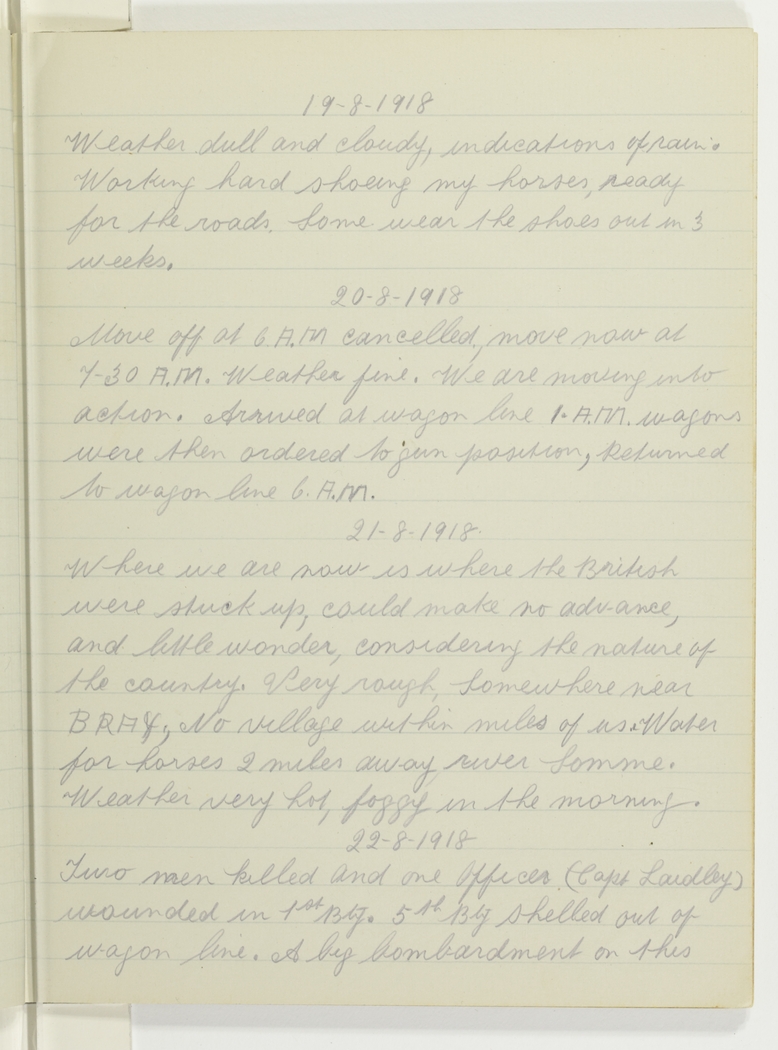 19-8-1918
Weather dull and cloudy, indications of rain.
Working hard shoeing my horses, ready
for the roads. Some wear the shoes out in 3
weeks.
20-8-1918
Move off at 6 A.M cancelled, move now at
7-30 A.M. Weather fine. We are moving into
action. Arrived at wagon line 1. A.M. wagons
were then ordered to gun position, Returned
to wagon line 6. A.M.
21-8-1918.
Where we are now is where the British
were stuck up, could make no advance,
and little wonder, considering the nature of
the country. Very rough, Somewhere near
BRAY, No village within miles of us. Water
for horses 2 miles away river Somme.
Weather very hot, foggy in the morning.
22-8-1918
Two men killed and one Officer (Capt Laidley)
wounded in 1st Bty. 5th Bty shelled out of
wagon line. A big bombardment on this